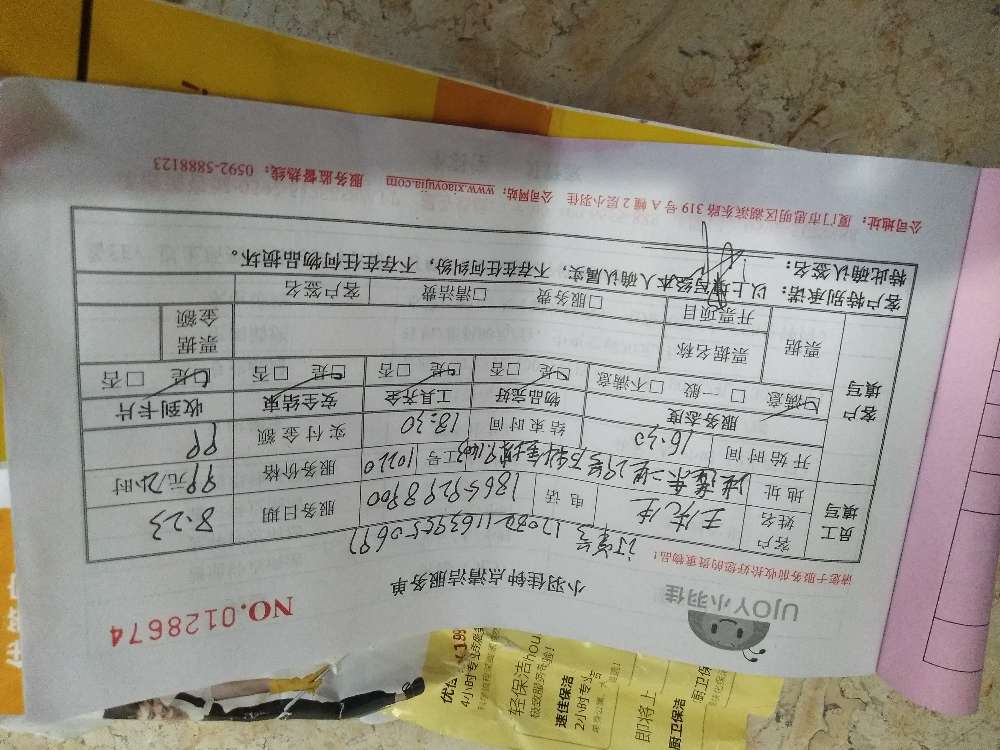 UJOY小羽佳
NO.0128674
小羽佳钟点清洁服务单
请您于服务前收拾好您的贵重物品！
订单号
员工填写
客户姓名 王先生 电话 服务日期 8.23
地址 工号 10220 服务价格 99元/2小时
开始时间 16:30 结束时间 18:30 实付金额 99
客户填写
服务态度 物品完好 工具齐全 安全结束 收到卡片
☑满意 □一般 □不满意 ☑是 □否 ☑是 □否 ☑是 □否 ☑是 □否
票据 票据名称 票据金额
开票项目 □服务费 □清洁费 客户签名
客户特别承诺：以上填写经本人确认属实，不存在任何纠纷，不存在任何物品损坏。
特此确认签名：
公司地址：厦门市思明区湖滨东路319号A幢2层小羽佳 公司网站：www.xiaoyujia.com 服务监督热线：0592-5888123
4小时专业
轻保洁hou
极致服务体验！
速佳保洁
2小时专业
即将上
厨卫保洁